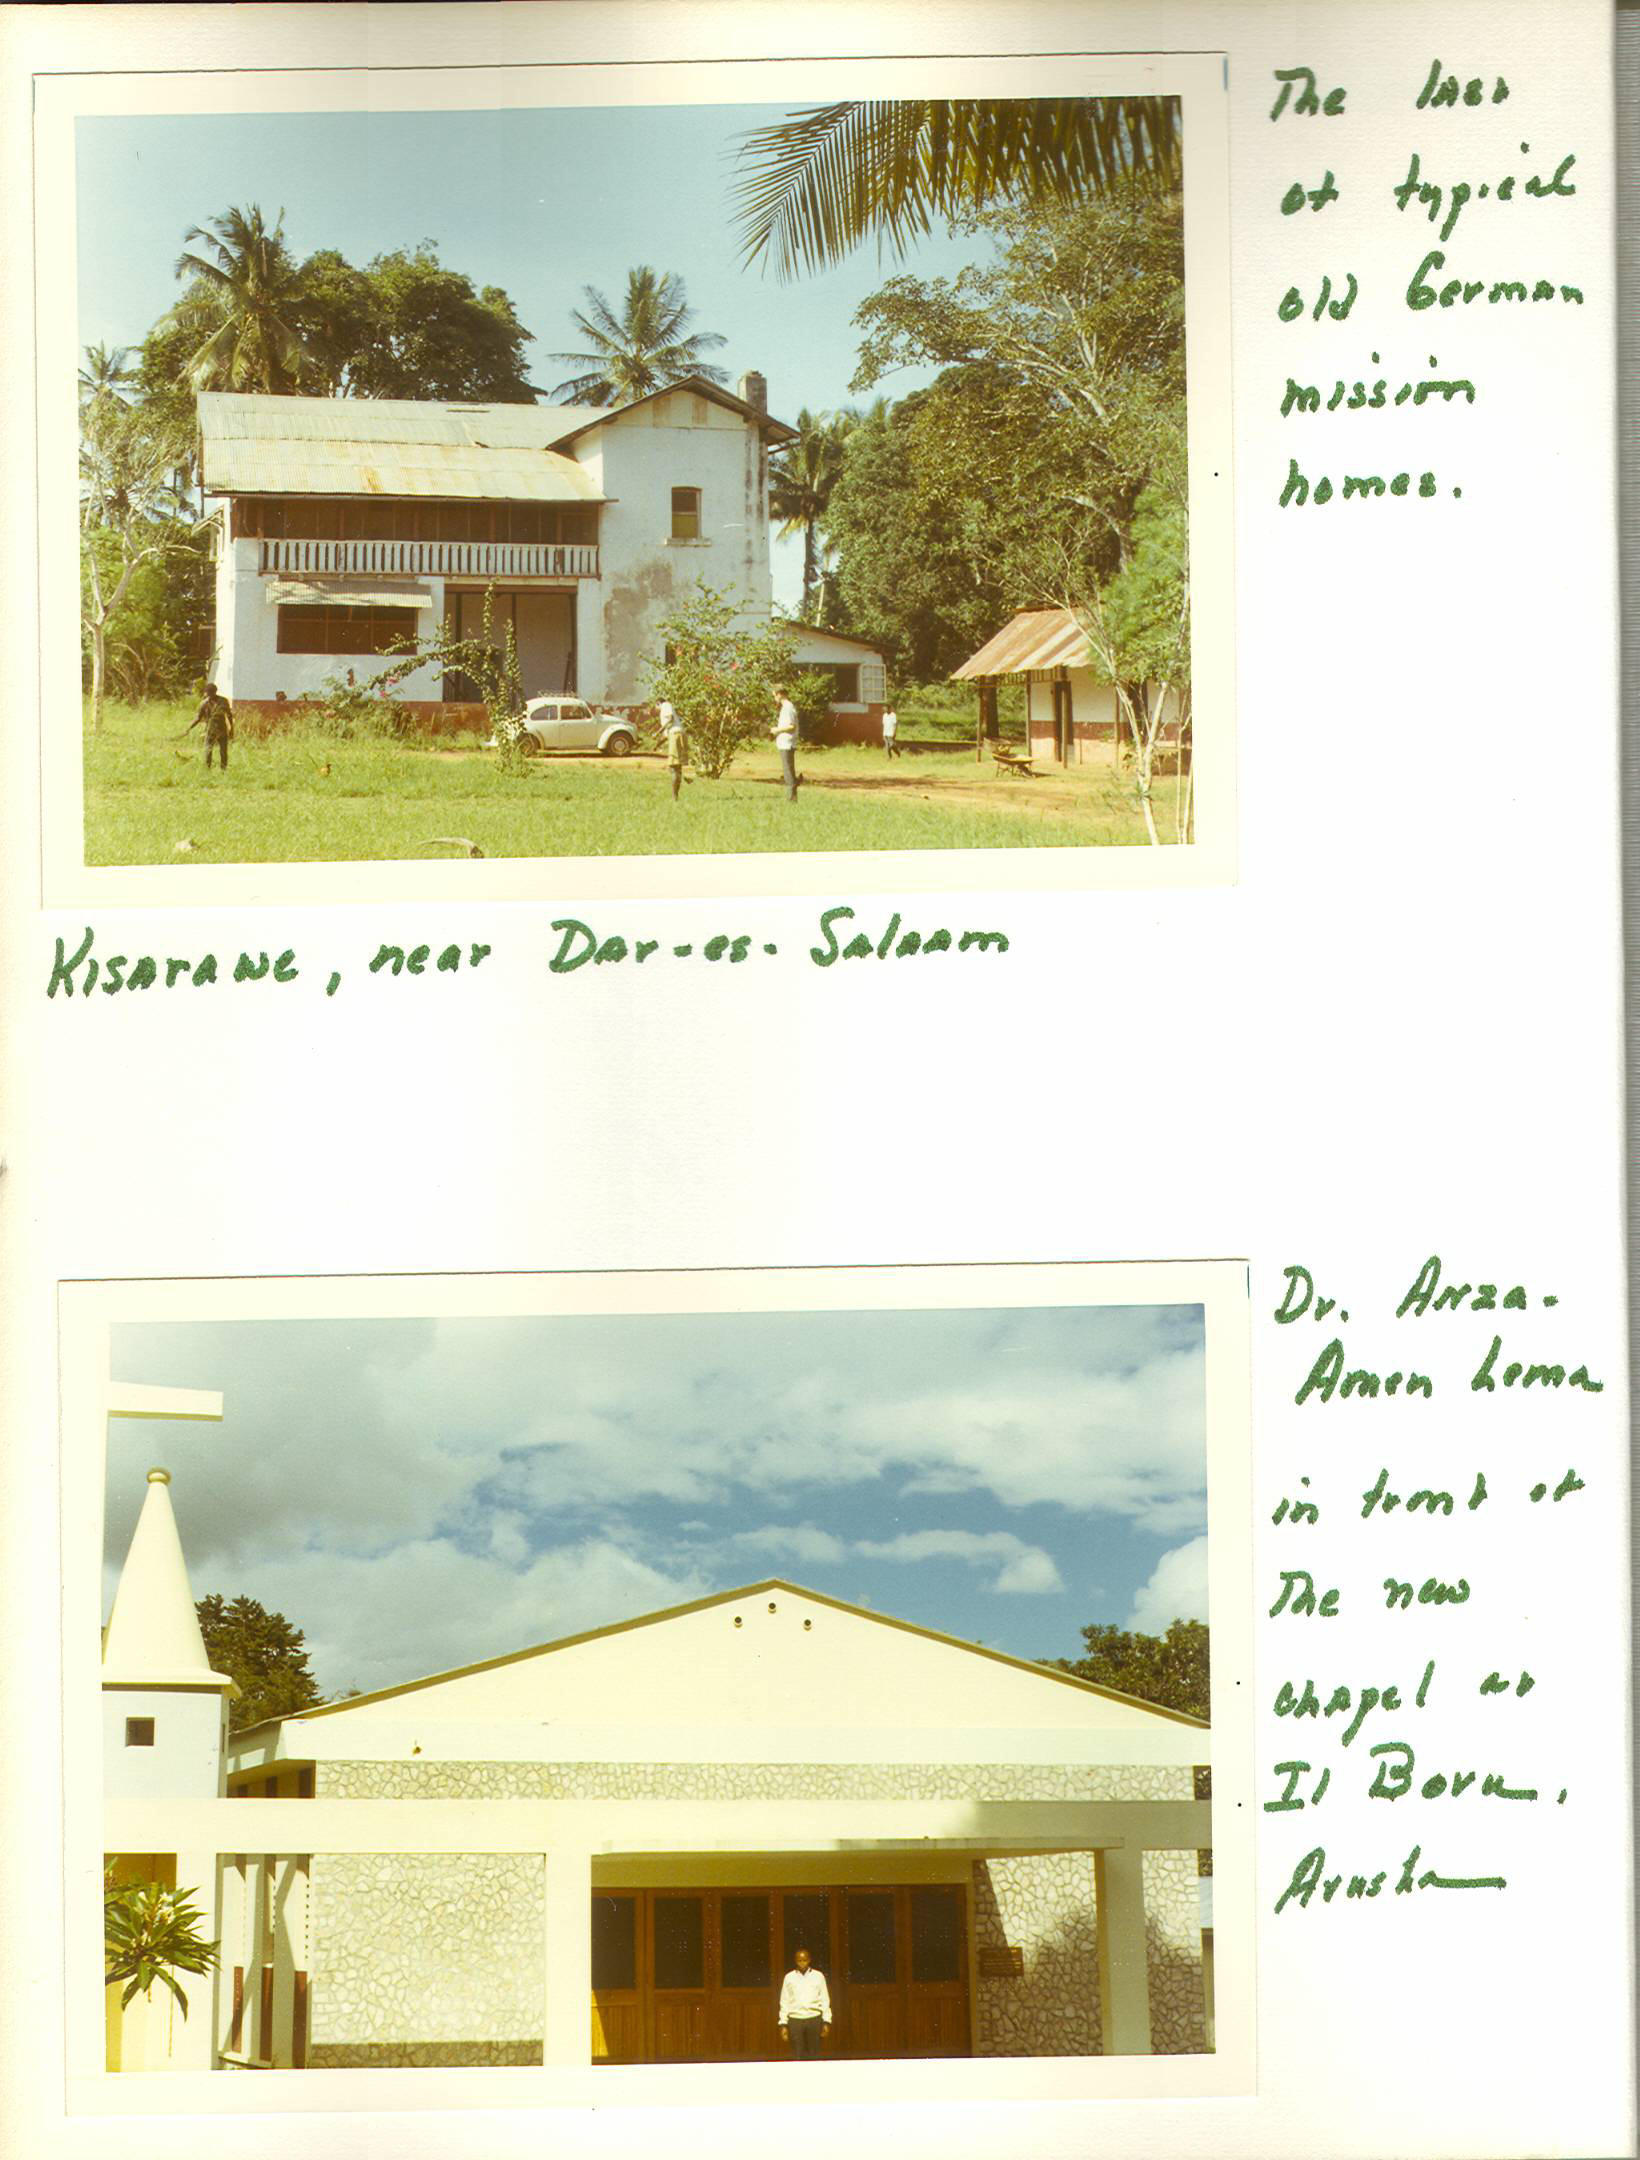 The last
of typical
old German
mission
homes.
Kisarawe, near Dar-es-Salaam
Dr. Anza-
Amen Lema
in front of
The new
chapel at
Il Boru,
Arusha